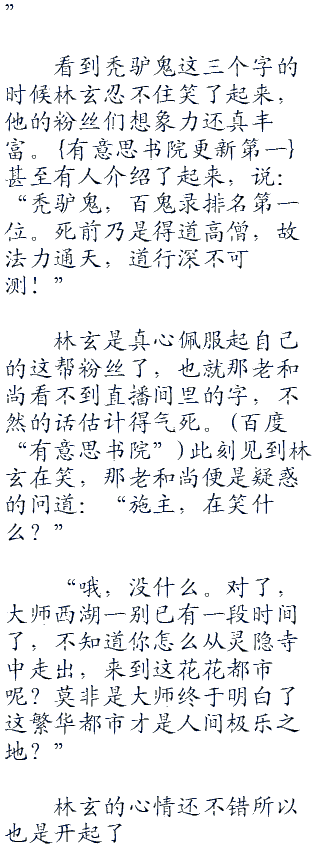 ”
看到秃驴鬼这三个字的
时候林玄忍不住笑了起来，
他的粉丝们想象力还真丰
富。{有意思书院更新第一}
甚至有人介绍了起来，说：
“秃驴鬼，百鬼录排名第一
位。死前乃是得道高僧，故
法力通天，道行深不可
测！”
林玄是真心佩服起自己
的这帮粉丝了，也就那老和
尚看不到直播间里的字，不
然的话估计得气死。(百度
“有意思书院”)此刻见到林
玄在笑，那老和尚便是疑惑
的问道：“施主，在笑什
么？”
“哦，没什么。对了，
大师西湖一别已有一段时间
了，不知道你怎么从灵隐寺
中走出，来到这花花都市
呢？莫非是大师终于明白了
这繁华都市才是人间极乐之
地？”
林玄的心情还不错所以
也是开起了